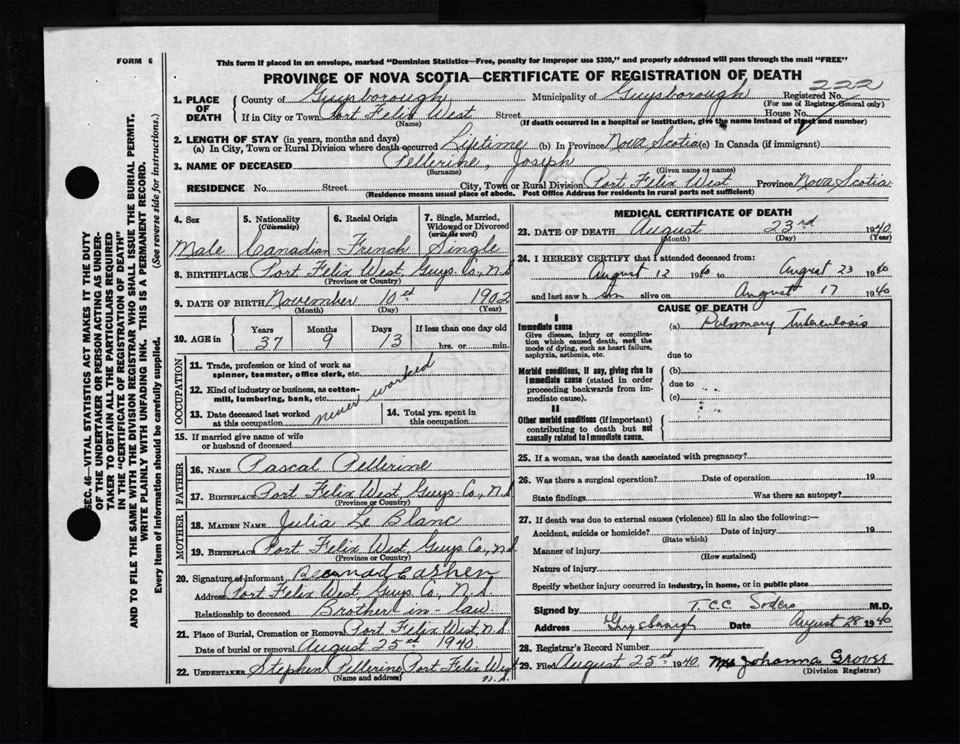 FORM 6
This form if placed in an envelope, marked "Dominion Statistics—Free, penalty for improper use $300," and properly addressed will pass through the mail "FREE"
PROVINCE OF NOVA SCOTIA—CERTIFICATE OF REGISTRATION OF DEATH
222
1. PLACE OF DEATH County of Guysborough Municipality of Guysborough Registered No.
(For use of Registrar General only)
If in City or Town Port Felix West Street House No.
(Name) (If death occurred in a hospital or institution, give the name instead of street and number)
2. LENGTH OF STAY (in years, months and days)
(a) In City, Town or Rural Division where death occurred Lifetime (b) In Province Nova Scotia (c) In Canada (if immigrant)
3. NAME OF DECEASED Pellerine, Joseph
(Surname) (Given name or names)
RESIDENCE No. Street City, Town or Rural Division Port Felix West Province Nova Scotia
(Residence means usual place of abode. Post Office Address for residents in rural parts not sufficient)
4. Sex 5. Nationality (Citizenship) 6. Racial Origin 7. Single, Married, Widowed or Divorced (write the word)
Male Canadian French Single
8. BIRTHPLACE Port Felix West, Guys. Co., N.S
(Province or County)
9. DATE OF BIRTH November 10th 1902
(Month) (Day) (Year)
10. AGE in Years Months Days If less than one day old
37 9 13 hrs. or min.
OCCUPATION
11. Trade, profession or kind of work as spinner, teamster, office clerk, etc.
12. Kind of industry or business, as cotton-mill, lumbering, bank, etc.
never worked
13. Date deceased last worked at this occupation 14. Total yrs. spent in this occupation
15. If married give name of wife or husband of deceased
FATHER
16. NAME Pascal Pellerine
17. BIRTHPLACE Port Felix West, Guys. Co., N.S
(Province or County)
MOTHER
18. MAIDEN NAME Julia Le Blanc
19. BIRTHPLACE Port Felix West, Guys. Co., N.S.
(Province or County)
20. Signature of informant Bernard Cashen
Address Port Felix West, Guys. Co., N.S.
Relationship to deceased Brother-in-law
21. Place of Burial, Cremation or Removal Port Felix West, N.S.
Date of burial or removal August 25th 1940
22. UNDERTAKER Stephen Pellerine Port Felix West
(Name and address) N.S.
MEDICAL CERTIFICATE OF DEATH
23. DATE OF DEATH August 23rd 1940
(Month) (Day) (Year)
24. I HEREBY CERTIFY that I attended deceased from:
August 12 1940 to August 23 1940
and last saw him alive on August 17 1940
CAUSE OF DEATH
I
Immediate cause
Give disease, injury or complication which caused death, not the mode of dying, such as heart failure, asphyxia, asthenia, etc.
(a) Pulmonary Tuberculosis
due to
Morbid conditions, if any, giving rise to immediate cause (stated in order proceeding backwards from immediate cause).
(b)
due to
(c)
II
Other morbid conditions (if important) contributing to death but not causally related to immediate cause.
25. If a woman, was the death associated with pregnancy?
26. Was there a surgical operation? Date of operation 19
State findings Was there an autopsy?
27. If death was due to external causes (violence) fill in also the following:—
Accident, suicide or homicide? Date of injury 19
(State which)
Manner of injury
(How sustained)
Nature of injury
Specify whether injury occurred in industry, in home, or in public place
Signed by T.C.C. Sodero M.D.
Address Guysborough Date August 28 1940
28. Registrar's Record Number
29. Filed August 25th 1940 Mrs Johanna Grover
(Division Registrar)
SEC. 46—VITAL STATISTICS ACT MAKES IT THE DUTY
OF THE UNDERTAKER OR PERSON ACTING AS UNDER-
TAKER TO OBTAIN ALL THE PARTICULARS REQUIRED
IN THE "CERTIFICATE OF REGISTRATION OF DEATH"
AND TO FILE THE SAME WITH THE DIVISION REGISTRAR WHO SHALL ISSUE THE BURIAL PERMIT.
WRITE PLAINLY WITH UNFADING INK. THIS IS A PERMANENT RECORD.
Every item of information should be carefully supplied. (See reverse side for instructions.)